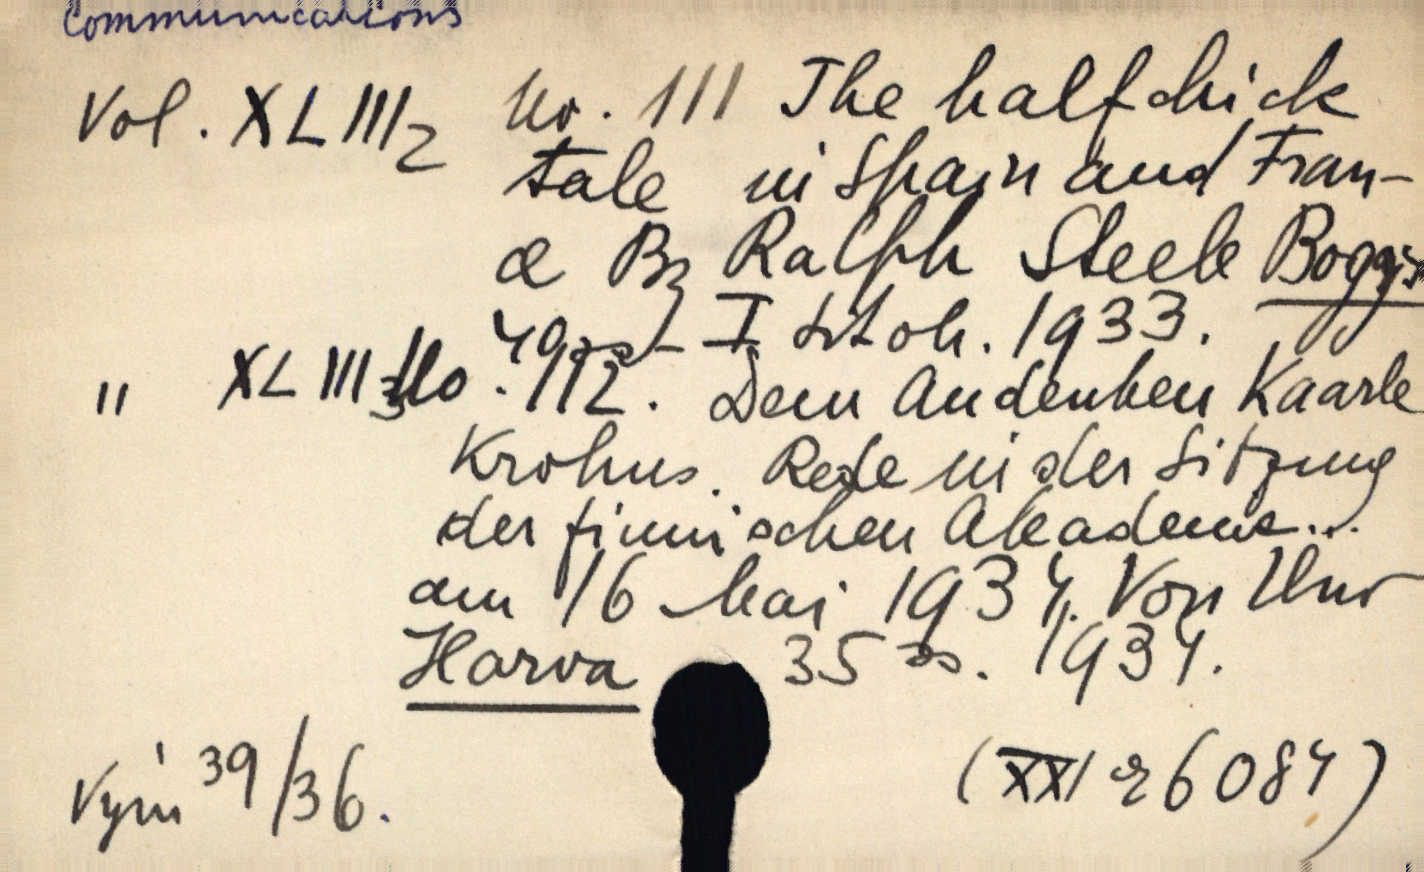 Communications
Vol. XLIII2 No. 111 The halfchick
tale in Spain and Fran-
ce By Ralph Steele Boggs
I Stoh. 1933.
" XLIII3 No. 112. Dem Andenken Kaarle
Krohns. Rede in der Sitzung
der finnischen Akademie...
am 16 Mai 1934. Von Uno
Harva 35 ss. 1934.
Vým 39/36. (XXI 26084)